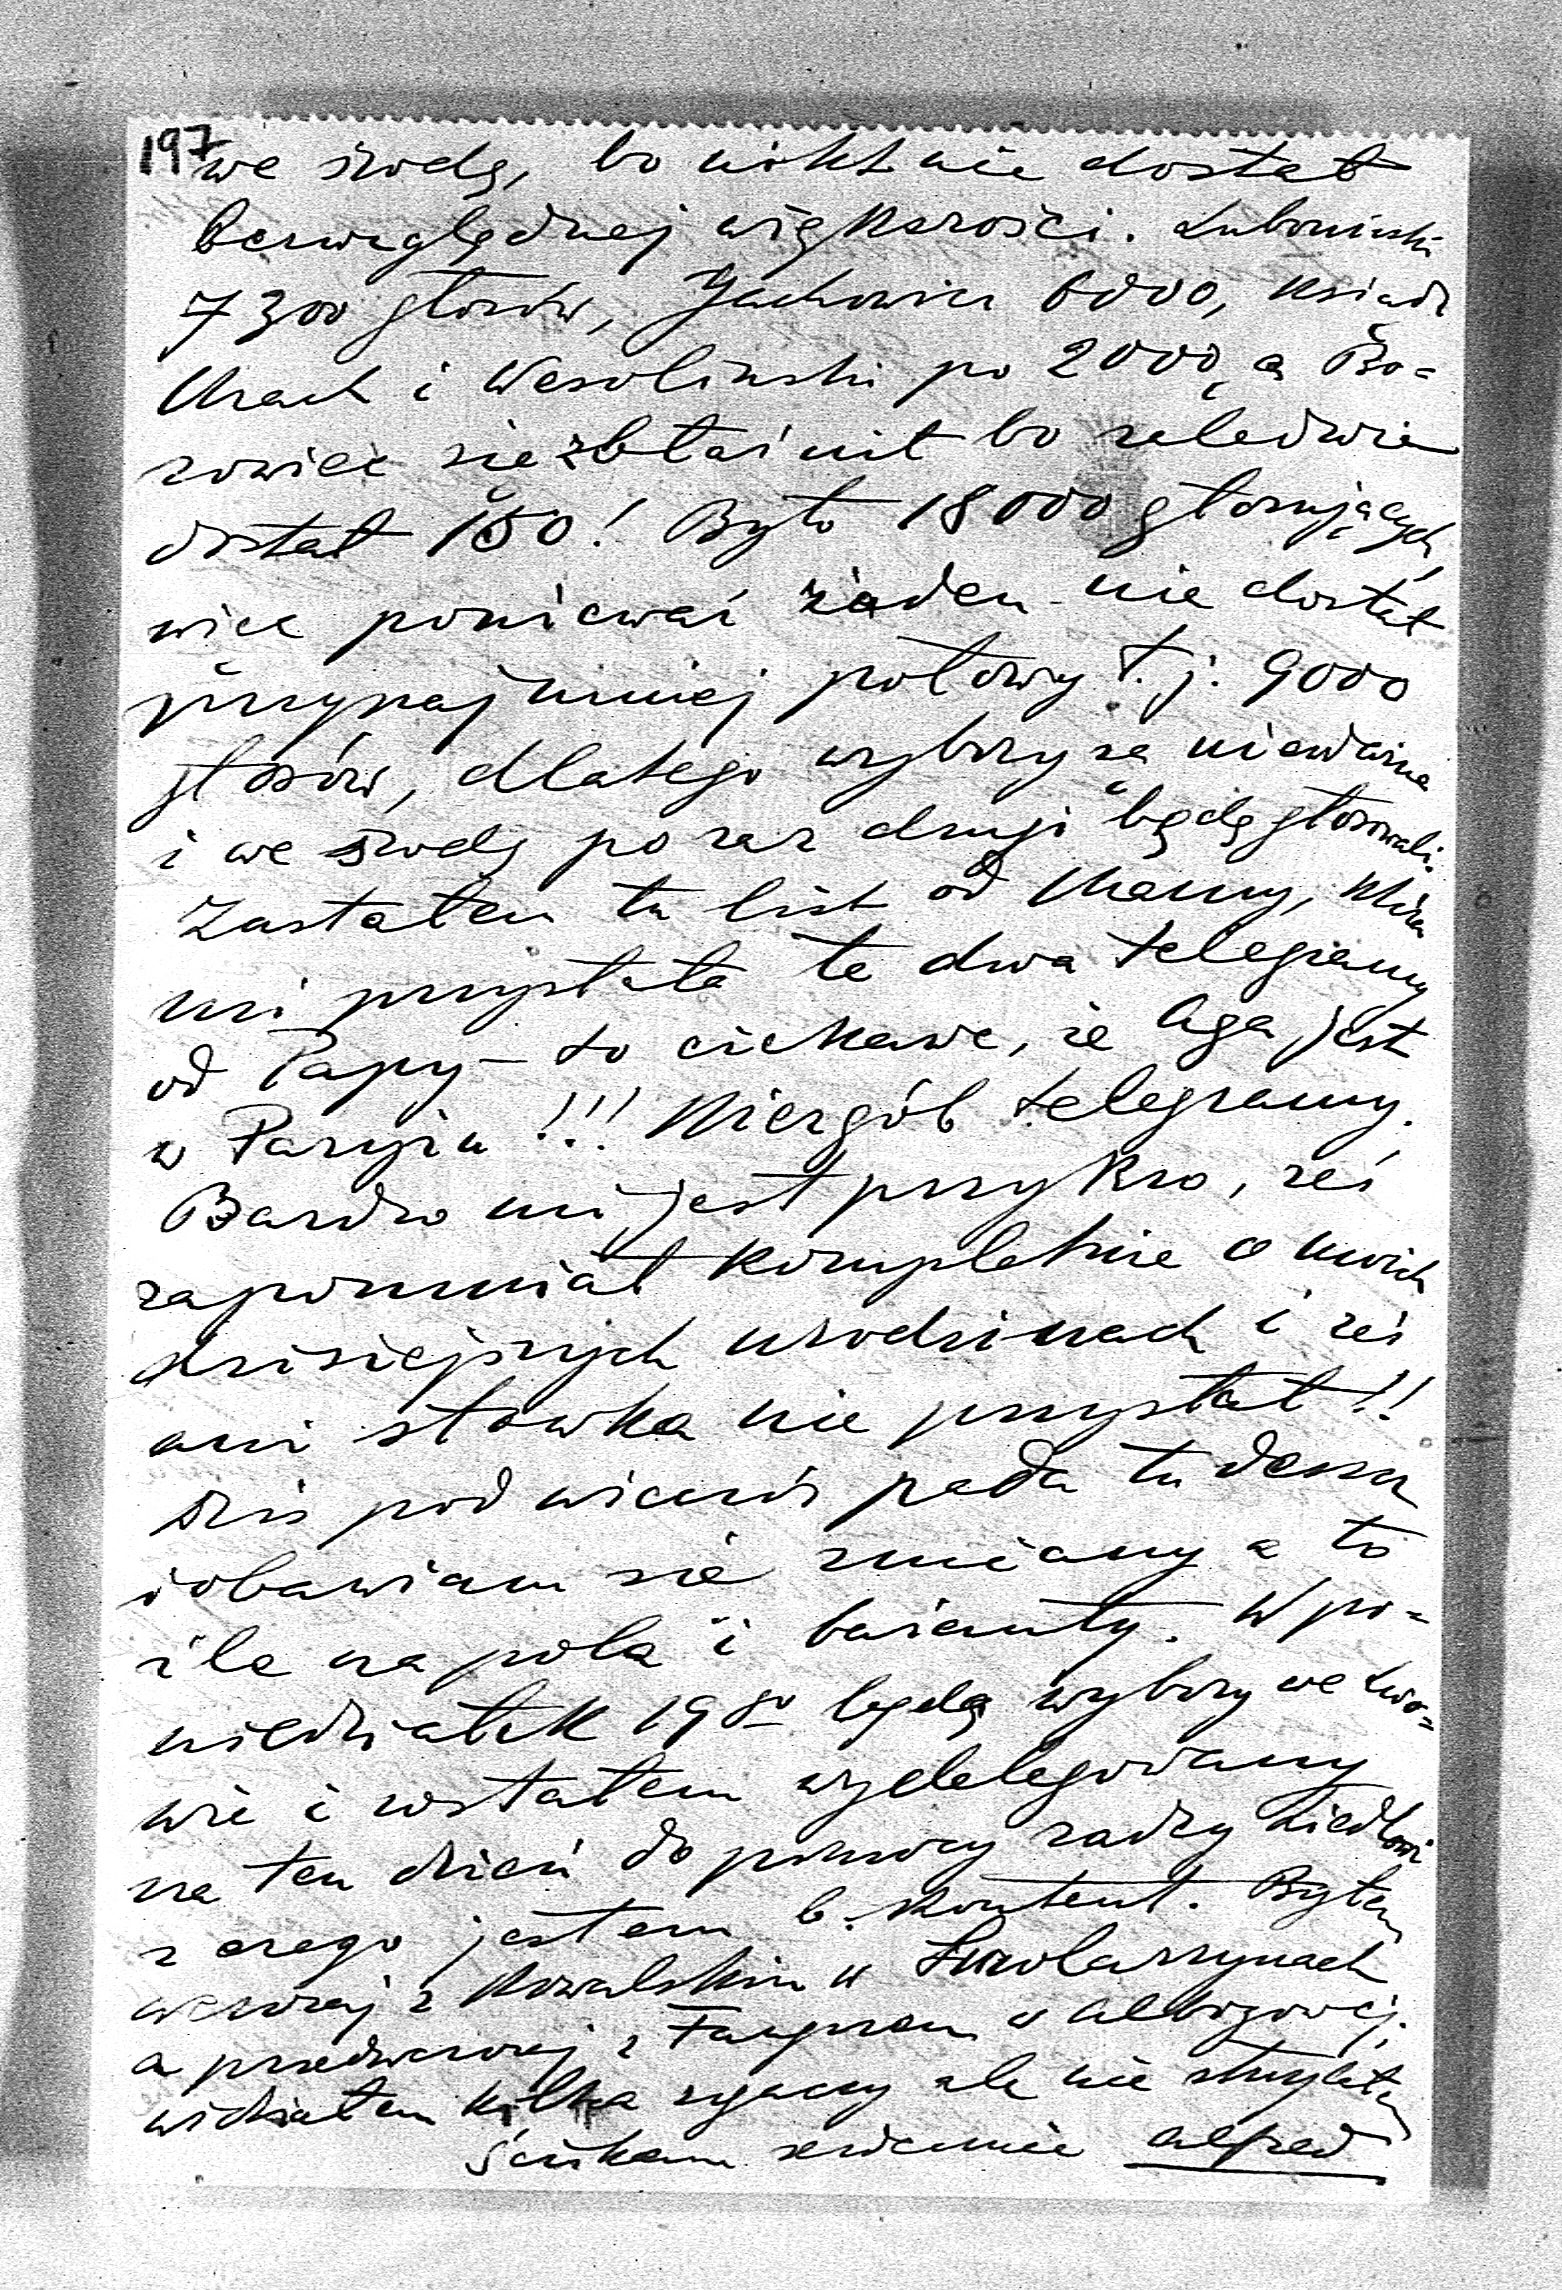 197
we środę, bo nikt nie dostał
bezwzględnej większości. Lubomirski
7300 głosów, Jachowicz 6000, ksiądz
i Wesoliński po 2000, a Bo-
rowicz się zbłaźnił bo zaledwie
dostał 150! Było 18000 głosujących,
więc ponieważ żaden nie dostał
przynajmniej połowy t.j. 9000
głosów, dlatego wybory są nieważne
i we środę po raz drugi będą głosowali.
Zastałem tu list od Mamy, która
mi przysłała te dwa telegramy
od Papy – to ciekawe, że Aga jest
w Paryżu!!! Nie zgub telegramy.
Bardzo mi jest przykro, żeś
zapomniał kompletnie o moich
dzisiejszych urodzinach i żeś
ani słówka nie przysłał!!
Dziś pod wieczór pada tu deszcz
i obawiam się zmiany a to
źle na pola i bażanty. W po-
niedziałek 19go będą wybory we Lwo-
wie i zostałem wydelegowany
na ten dzień do pomocy radzy
z czego jestem b. kontent. Byłem
wczoraj z Kowalskim w Smolarzynach
a przedwczoraj z w Albigowej,
widziałem kilka zajęcy ale nie strzelałem
ściskam serdecznie Alfred